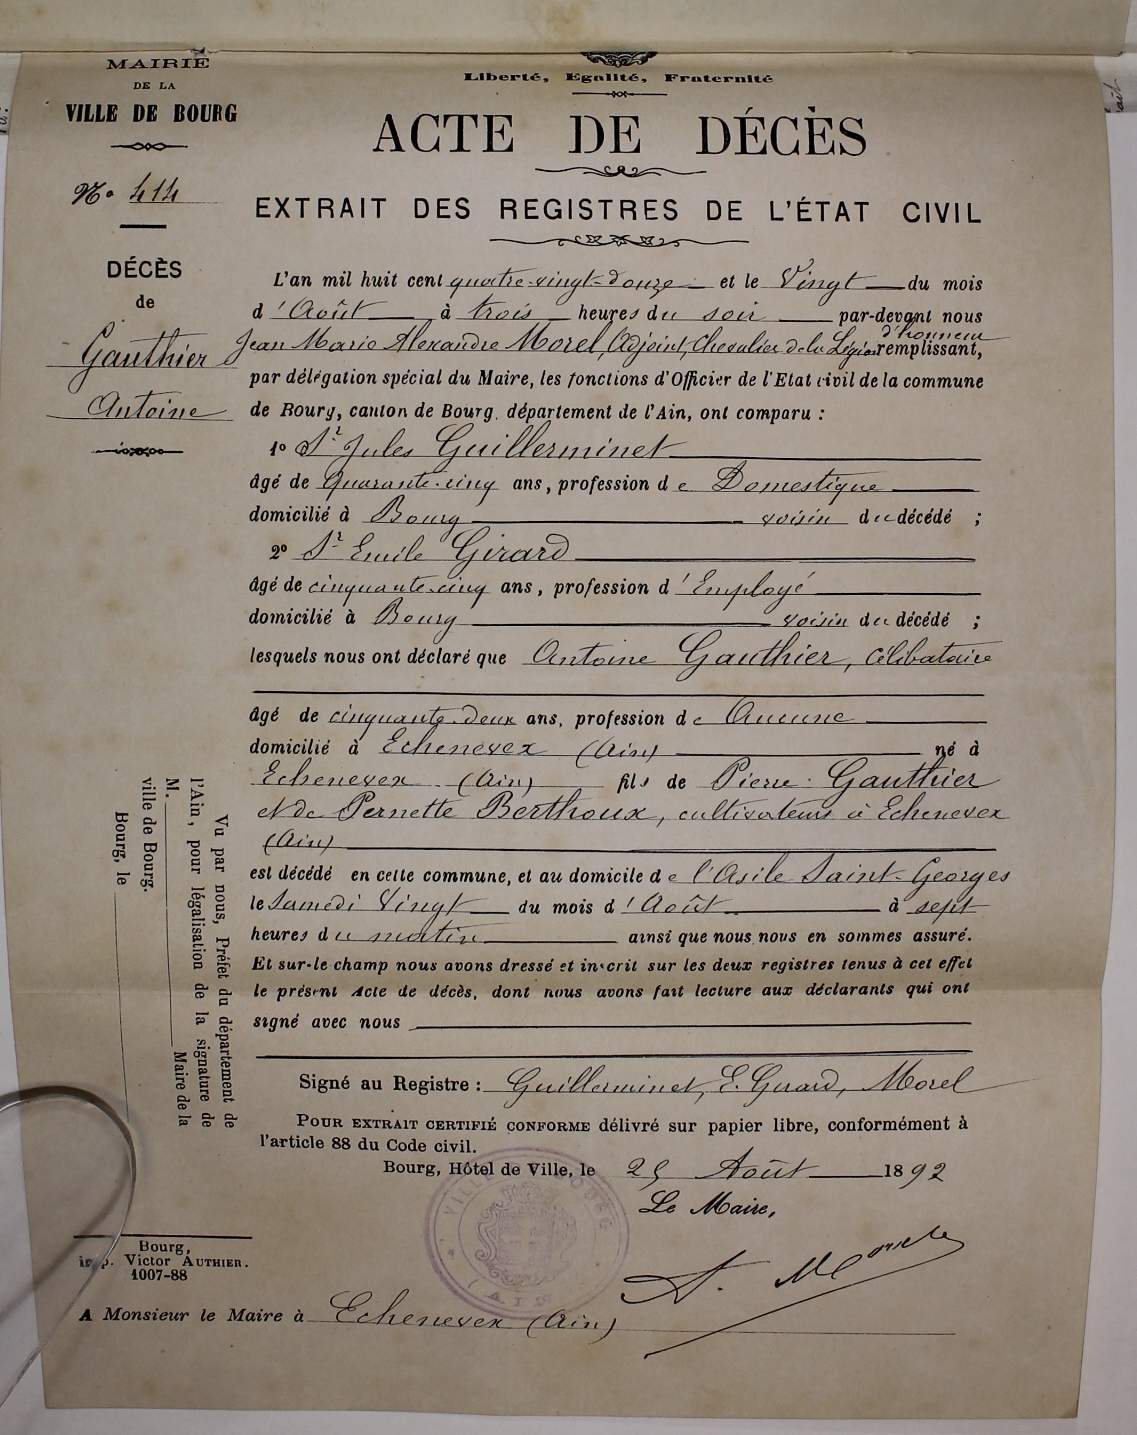 MAIRIE
DE LA
VILLE DE BOURG
N° 414
DÉCÈS
de
Gauthier
Antoine
Liberté, Egalité, Fraternité
ACTE DE DÉCÈS
EXTRAIT DES REGISTRES DE L'ÉTAT CIVIL
L'an mil huit cent quatre-vingt-douze et le Vingt du mois
d'Août à trois heures du soir par-devant nous
Jean Marie Alexandre Morel, Adjoint, Chevalier de la Légion d'honneur remplissant,
par délégation spécial du Maire, les fonctions d'Officier de l'Etat civil de la commune
de Bourg, canton de Bourg, département de l'Ain, ont comparu :
1° Sr Jules Guillerminet
âgé de Quarante-cinq ans, profession de Domestique
domicilié à Bourg voisin du décédé ;
2° Sr Emile Girard
âgé de cinquante-cinq ans, profession d'Employé
domicilié à Bourg voisin du décédé ;
lesquels nous ont déclaré que Antoine Gauthier, célibataire
âgé de cinquante-deux ans, profession de Aucune
domicilié à Echenevex (Ain) né à
Echenevex (Ain) fils de Pierre Gauthier
et de Pernette Berthoux, cultivateurs à Echenevex
(Ain)
est décédé en cette commune, et au domicile de l'Asile Saint-Georges
le Samedi Vingt du mois d'Août à sept
heures du matin ainsi que nous nous en sommes assuré.
Et sur-le champ nous avons dressé et inscrit sur les deux registres tenus à cet effet
le présent Acte de décès, dont nous avons fait lecture aux déclarants qui ont
signé avec nous
Signé au Registre : Guillerminet, E. Girard, Morel
POUR EXTRAIT CERTIFIÉ CONFORME délivré sur papier libre, conformément à
l'article 88 du Code civil.
Bourg, Hôtel de Ville, le 25 Août 1892
Le Maire,
A. Morel
VILLE DE BOURG
(AIN)
Vu par nous, Préfet du département de
l'Ain, pour légalisation de la signature de
M. Maire de la
ville de Bourg.
Bourg, le
Bourg,
imp. Victor AUTHIER.
1007-88
A Monsieur le Maire à Echenevex (Ain)